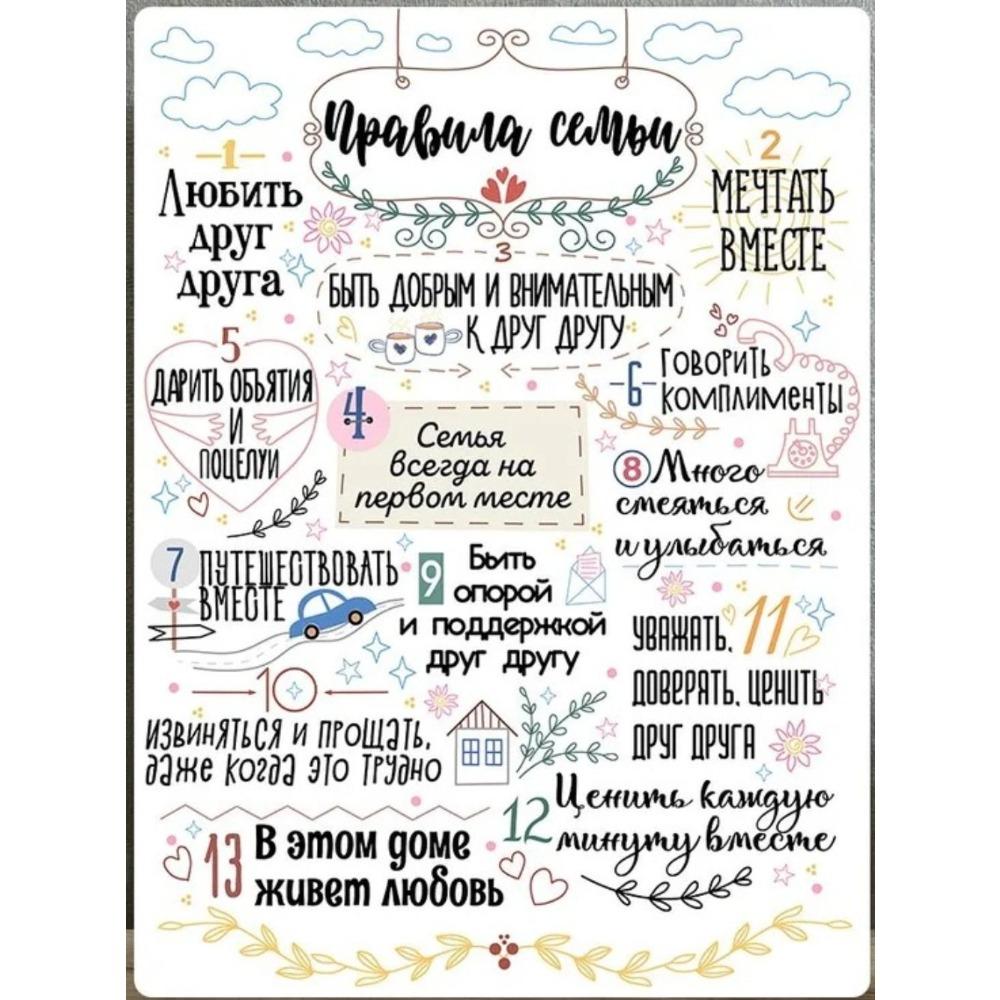 Правила семьи
1
Любить
друг
друга
2
МЕЧТАТЬ
ВМЕСТЕ
3
БЫТЬ ДОБРЫМ И ВНИМАТЕЛЬНЫМ
К ДРУГ ДРУГУ
4
Семья
всегда на
первом месте
5
ДАРИТЬ ОБЪЯТИЯ
И
ПОЦЕЛУИ
6
ГОВОРИТЬ
КОМПЛИМЕНТЫ
7
ПУТЕШЕСТВОВАТЬ
ВМЕСТЕ
8 Много
смеяться
и улыбаться
9
Быть
опорой
и поддержкой
друг другу
10
ИЗВИНЯТЬСЯ И ПРОЩАТЬ,
даже когда это трудно
11
УВАЖАТЬ,
ДОВЕРЯТЬ, ЦЕНИТЬ
ДРУГ ДРУГА
12
Ценить каждую
минуту вместе
13
В этом доме
живет любовь